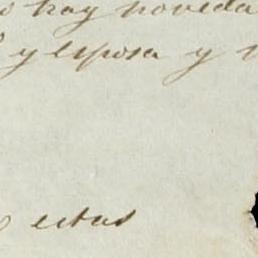 hay novedad
y esposa y
estas